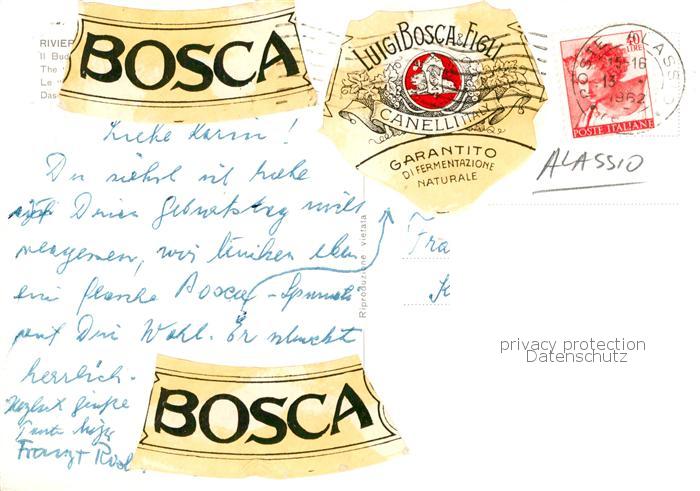 RIVIER
Il Bud
The
Le
Das
BOSCA
LUIGI BOSCA & FIGLI
CANELLI ITALY
GARANTITO
DI FERMENTAZIONE
NATURALE
40
LIRE
ALASSIO
15-16
13
1962
POSTE ITALIANE
ALASSIO
Liebe Karin!
Du siehst wir haben
Deinen Geburtstag nicht
vergessen, wir trinken eben
eine Flasche Bosca-Spumante
auf Dein Wohl. Er schmeckt
herrlich.
Herzlichst
Tante
Franz + Rosl.
Riproduzione vietata
Fra
privacy protection
Datenschutz
BOSCA